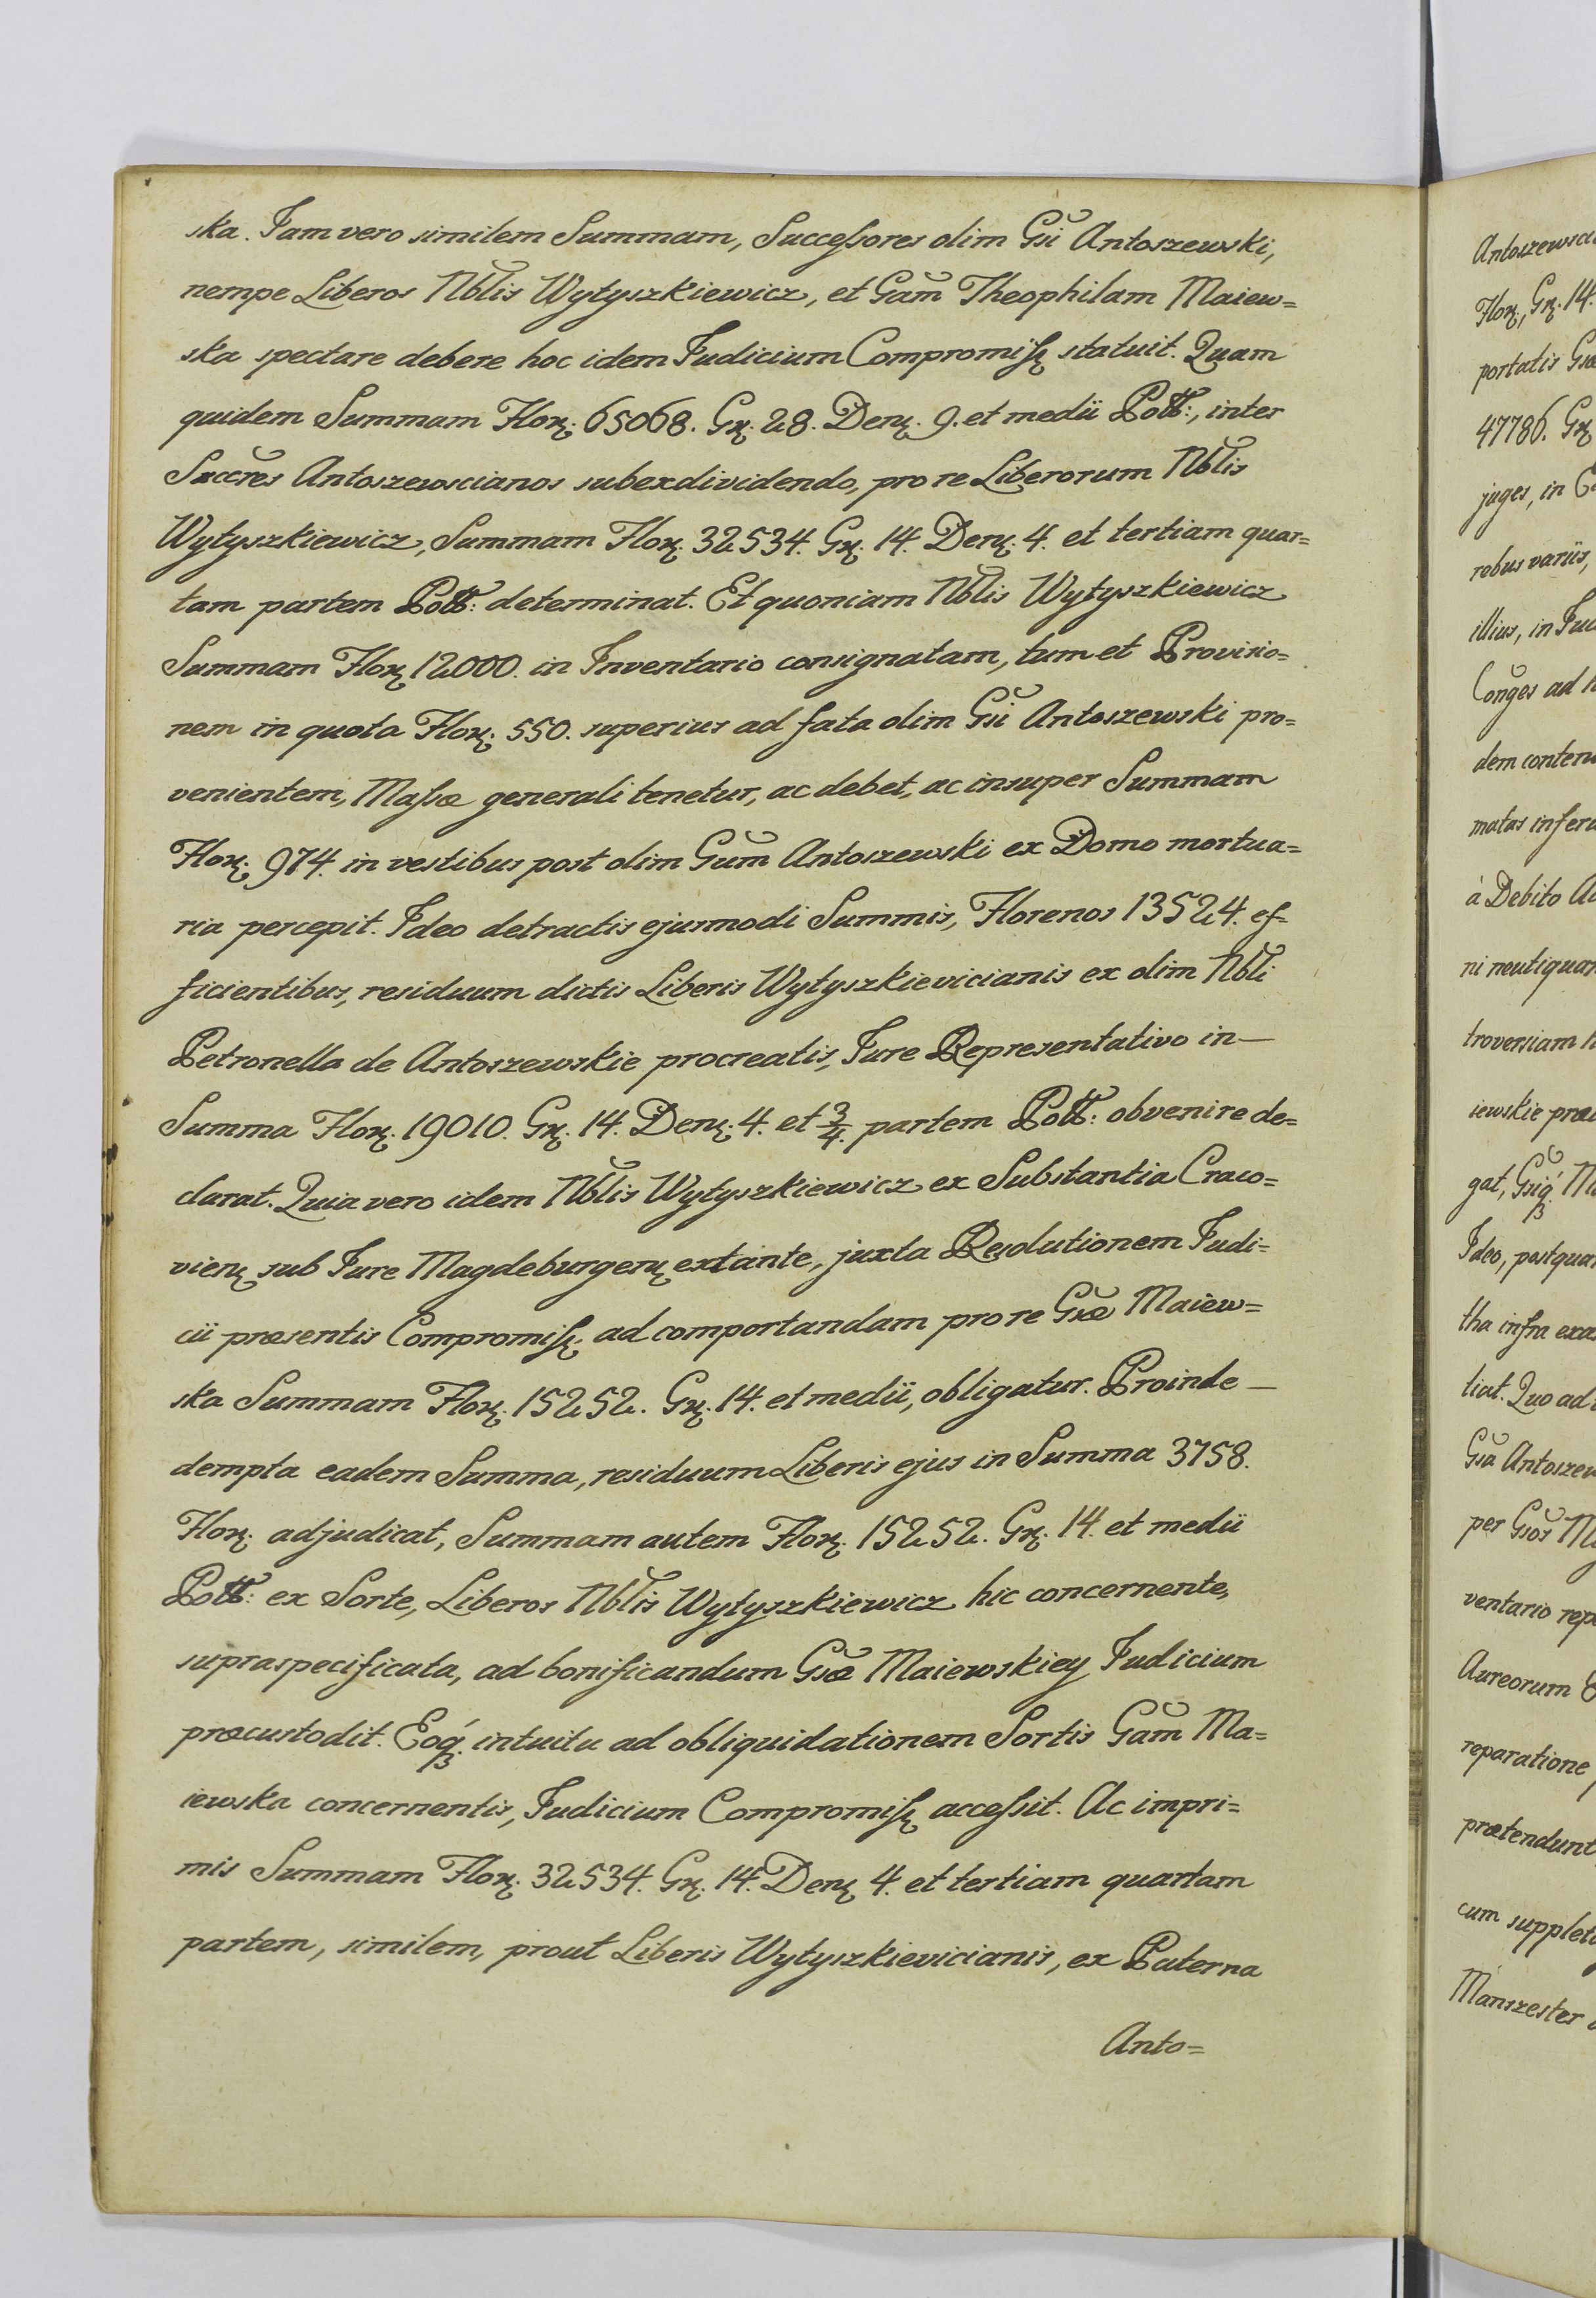 ska. Jam vero similem Summam, Successores olim Gsi Antoszewski,
nempe Liberos Nblis Wytyszkiewicz, et Gam Theophilam Maiew=
ska spectare debere hoc idem Judicium Compromiss: statuit. Quam
quidem Summam Flor: 65068. Gr: 28. Den: 9. et medii Poll:, inter
Succres Antoszewscianos subexdividendo, pro re Liberorum Nblis
Wytyszkiewicz, Summam Flor: 32534. Gr: 14. Den: 4. et tertiam quar=
tam partem Poll: determinat. Et quoniam Nblis Wytyszkiewicz
Summam Flor: 12000. in Inventario consignatam, tum et Provisio=
nem in quota Flor: 550. superius ad fata olim Gsi Antoszewski pro=
venientem, Massæ generali tenetur, ac debet, ac insuper Summam
Flor: 974. in vestibus post olim Gum Antoszewski ex Domo mortua=
ria percepit. Ideo detractis ejusmodi Summis, Florenos 13524. ef=
ficientibus, residuum dictis Liberis Wytyszkievicianis ex olim Nbli
Petronella de Antoszewskie procreatis, Jure Repræsentativo in—
Summa Flor: 19010. Gr: 14. Den: 4. et 3/4. partem Poll: obvenire de=
clarat. Quia vero idem Nblis Wytyszkiewicz ex Substantia Craco=
vien: sub Jure Magdeburgen: extante, juxta Resolutionem Judi=
cii præsentis Compromiss: ad comportandam pro re Gsæ Maiew=
ska Summam Flor: 15252. Gr: 14. et medii, obligatur. Proinde—
dempta eadem Summa, residuum Liberis ejus in Summa 3758.
Flor: adjudicat, Summam autem Flor: 15252. Gr: 14. et medii
Poll: ex Sorte, Liberos Nblis Wytyszkiewicz hic concernente,
supraspecificata, ad bonificandum Gsæ Maiewskiey Judicium
præcustodit. Eoq́3 intuitu ad obliquidationem Sortis Gam Ma=
iewska concernentis, Judicium Compromiss: accessit. Ac impri=
mis Summam Flor: 32534. Gr: 14. Den: 4. et tertiam quartam
partem, similem, prout Liberis Wytyszkievicianis, ex Paterna
Anto=
Flor:, Gr: 14.
portatis
47786. Gr:
juges, in
rebus variis,
illius, in
Conges ad
dem
matas
à Debito
ni
troversiam
iewskie
gat,
Ideo,
tha infra
tiat. Quo ad
Gsa
per Gsos
ventario
Aureorum
reparatione
prætendunt
cum
Manszester